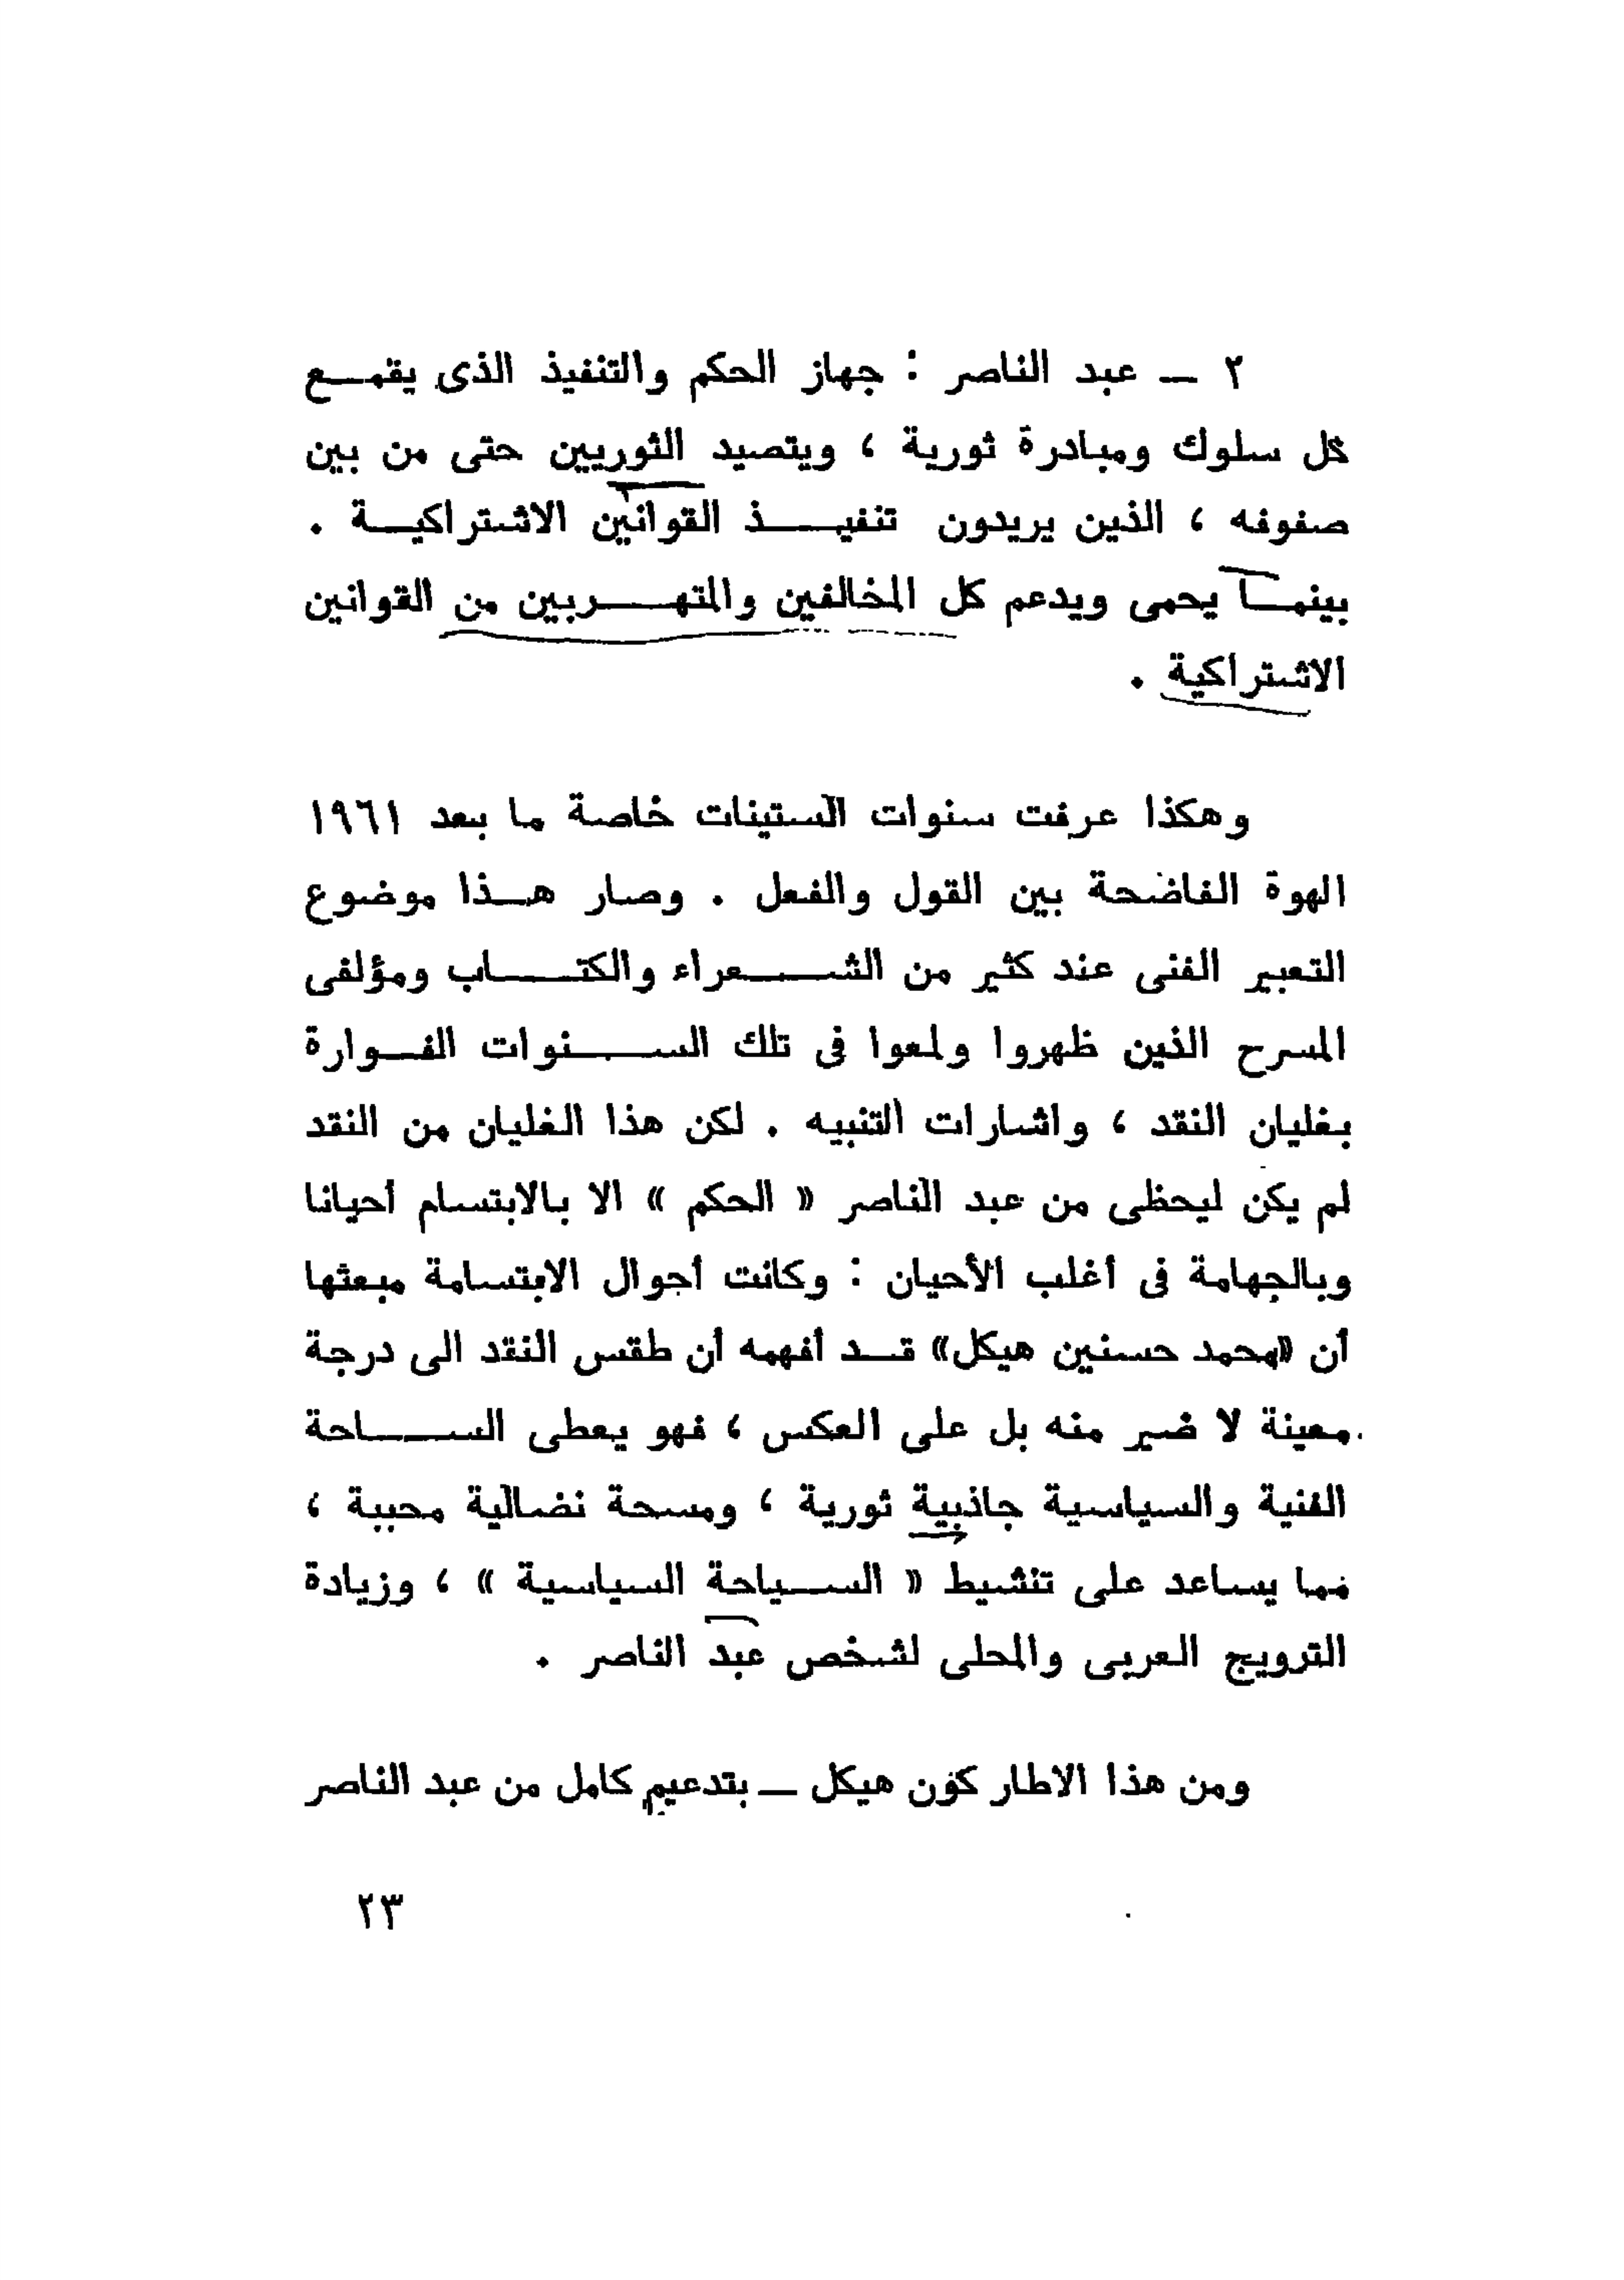 ٢ — عبد الناصر : جهاز الحكم والتنفيذ الذى يقمع
كل سلوك ومبادرة ثورية ، ويتصيد الثوريين حتى من بين
صفوفه ، الذين يريدون تنفيذ القوانين الاشتراكية .
بينما يحمى ويدعم كل المخالفين والمتهربين من القوانين
الاشتراكية .
وهكذا عرفت سنوات الستينات خاصة ما بعد ١٩٦١
الهوة الفاضحة بين القول والفعل . وصار هذا موضوع
التعبير الفنى عند كثير من الشعراء والكتاب ومؤلفى
المسرح الذين ظهروا ولمعوا فى تلك السنوات الفوارة
بغليان النقد ، واشارات التنبيه . لكن هذا الغليان من النقد
لم يكن ليحظى من عبد الناصر « الحكم » الا بالابتسام أحيانا
وبالجهامة فى أغلب الأحيان : وكانت أجوال الابتسامة مبعثها
أن «محمد حسنين هيكل» قد أفهمه أن طقس النقد الى درجة
معينة لا ضير منه بل على العكس ، فهو يعطى الساحة
الفنية والسياسية جاذبية ثورية ، ومسحة نضالية محببة ،
مما يساعد على تنشيط « السياحة السياسية » ، وزيادة
الترويج العربى والمحلى لشخص عبد الناصر .
ومن هذا الاطار كون هيكل — بتدعيم كامل من عبد الناصر
٢٣